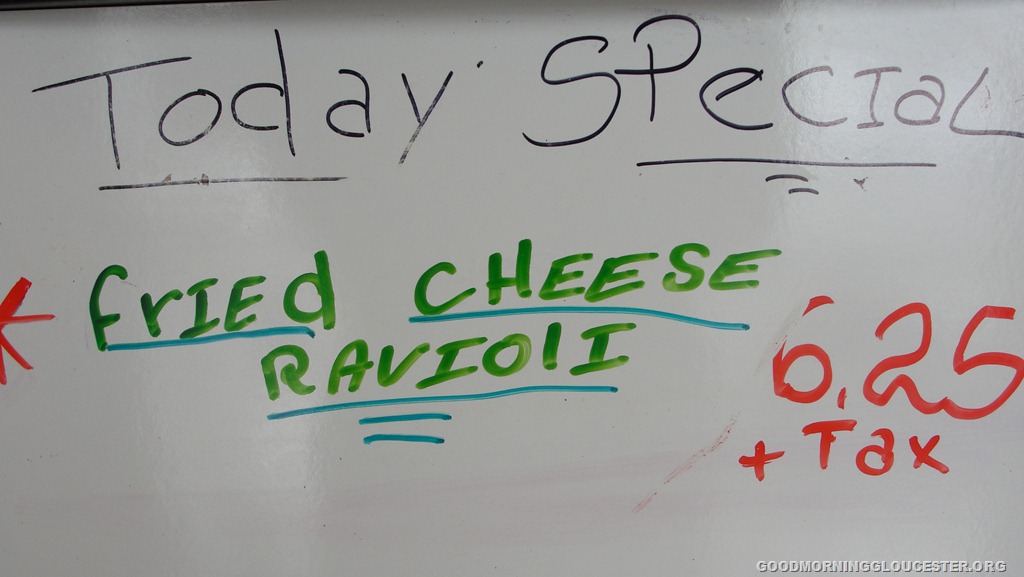 Today SPecIaL
* frIEd CHEESE
RAVIOlI
6.25
+ Tax
GOODMORNINGGLOUCESTER.ORG